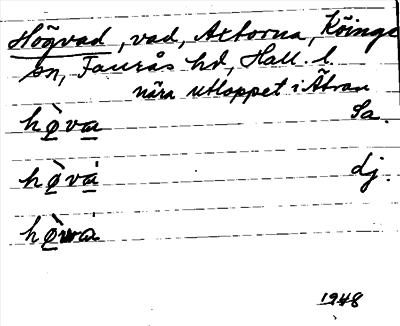 Högvad, vad, Axtorna, Köinge
sn, Faurås hd, Hall. l.
nära utloppet i Ätran
hø̀va Sa.
hø̀va dj.
1948